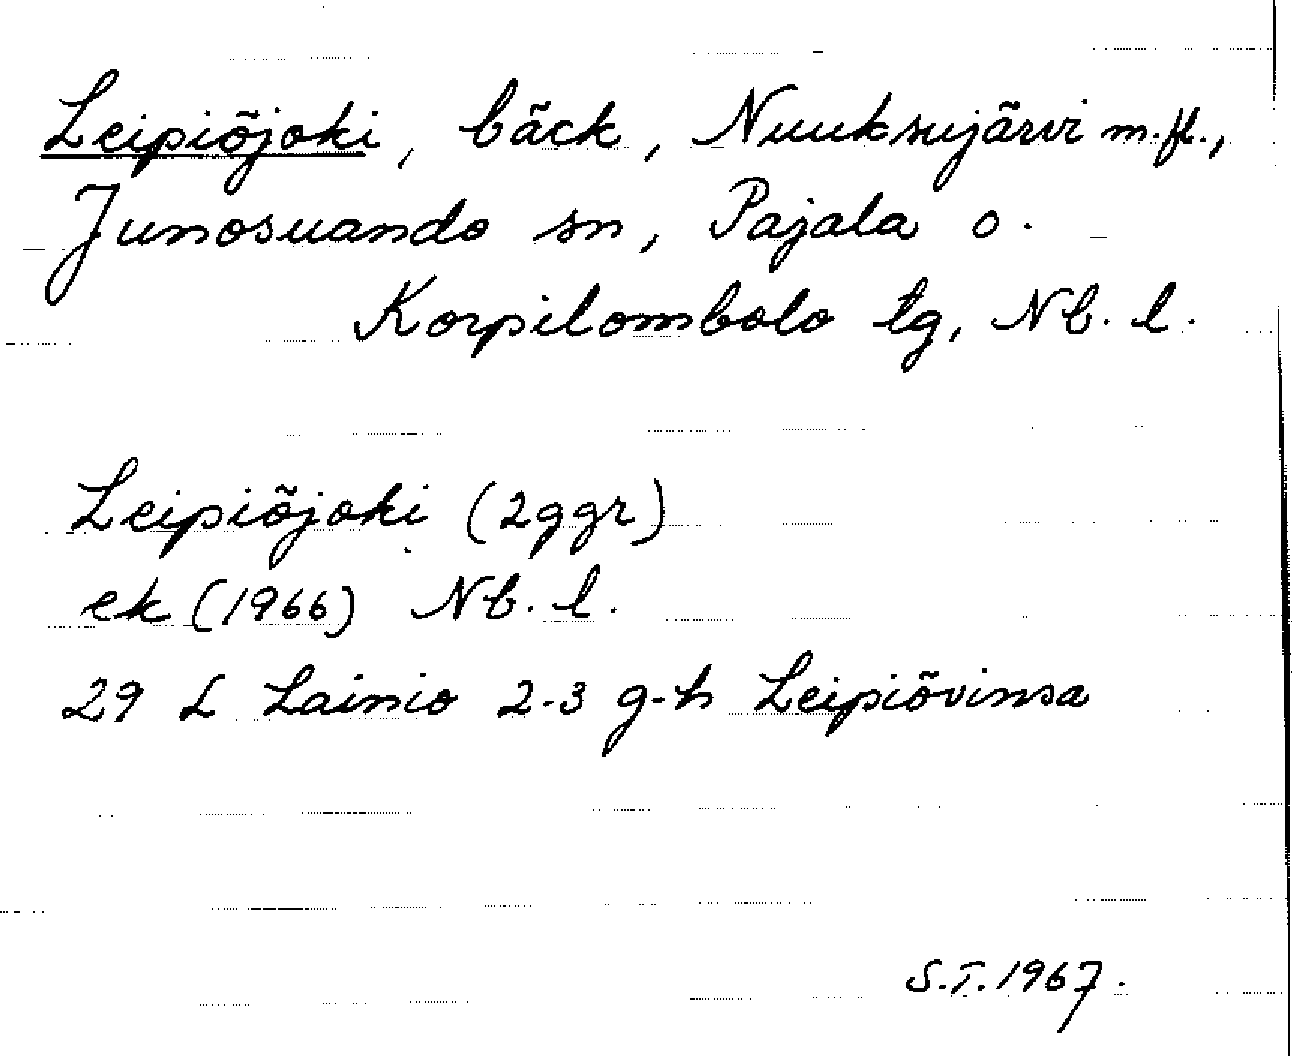 Leipiöjoki, bäck, Nuuksujärvi m.fl.,
Junosuando sn, Pajala o.
Korpilombolo tg, Nb. l.
Leipiöjoki (2ggr)
ek (1966) Nb. l.
29 L Lainio 2-3 g-h Leipiövinsa
S.T. 1967.